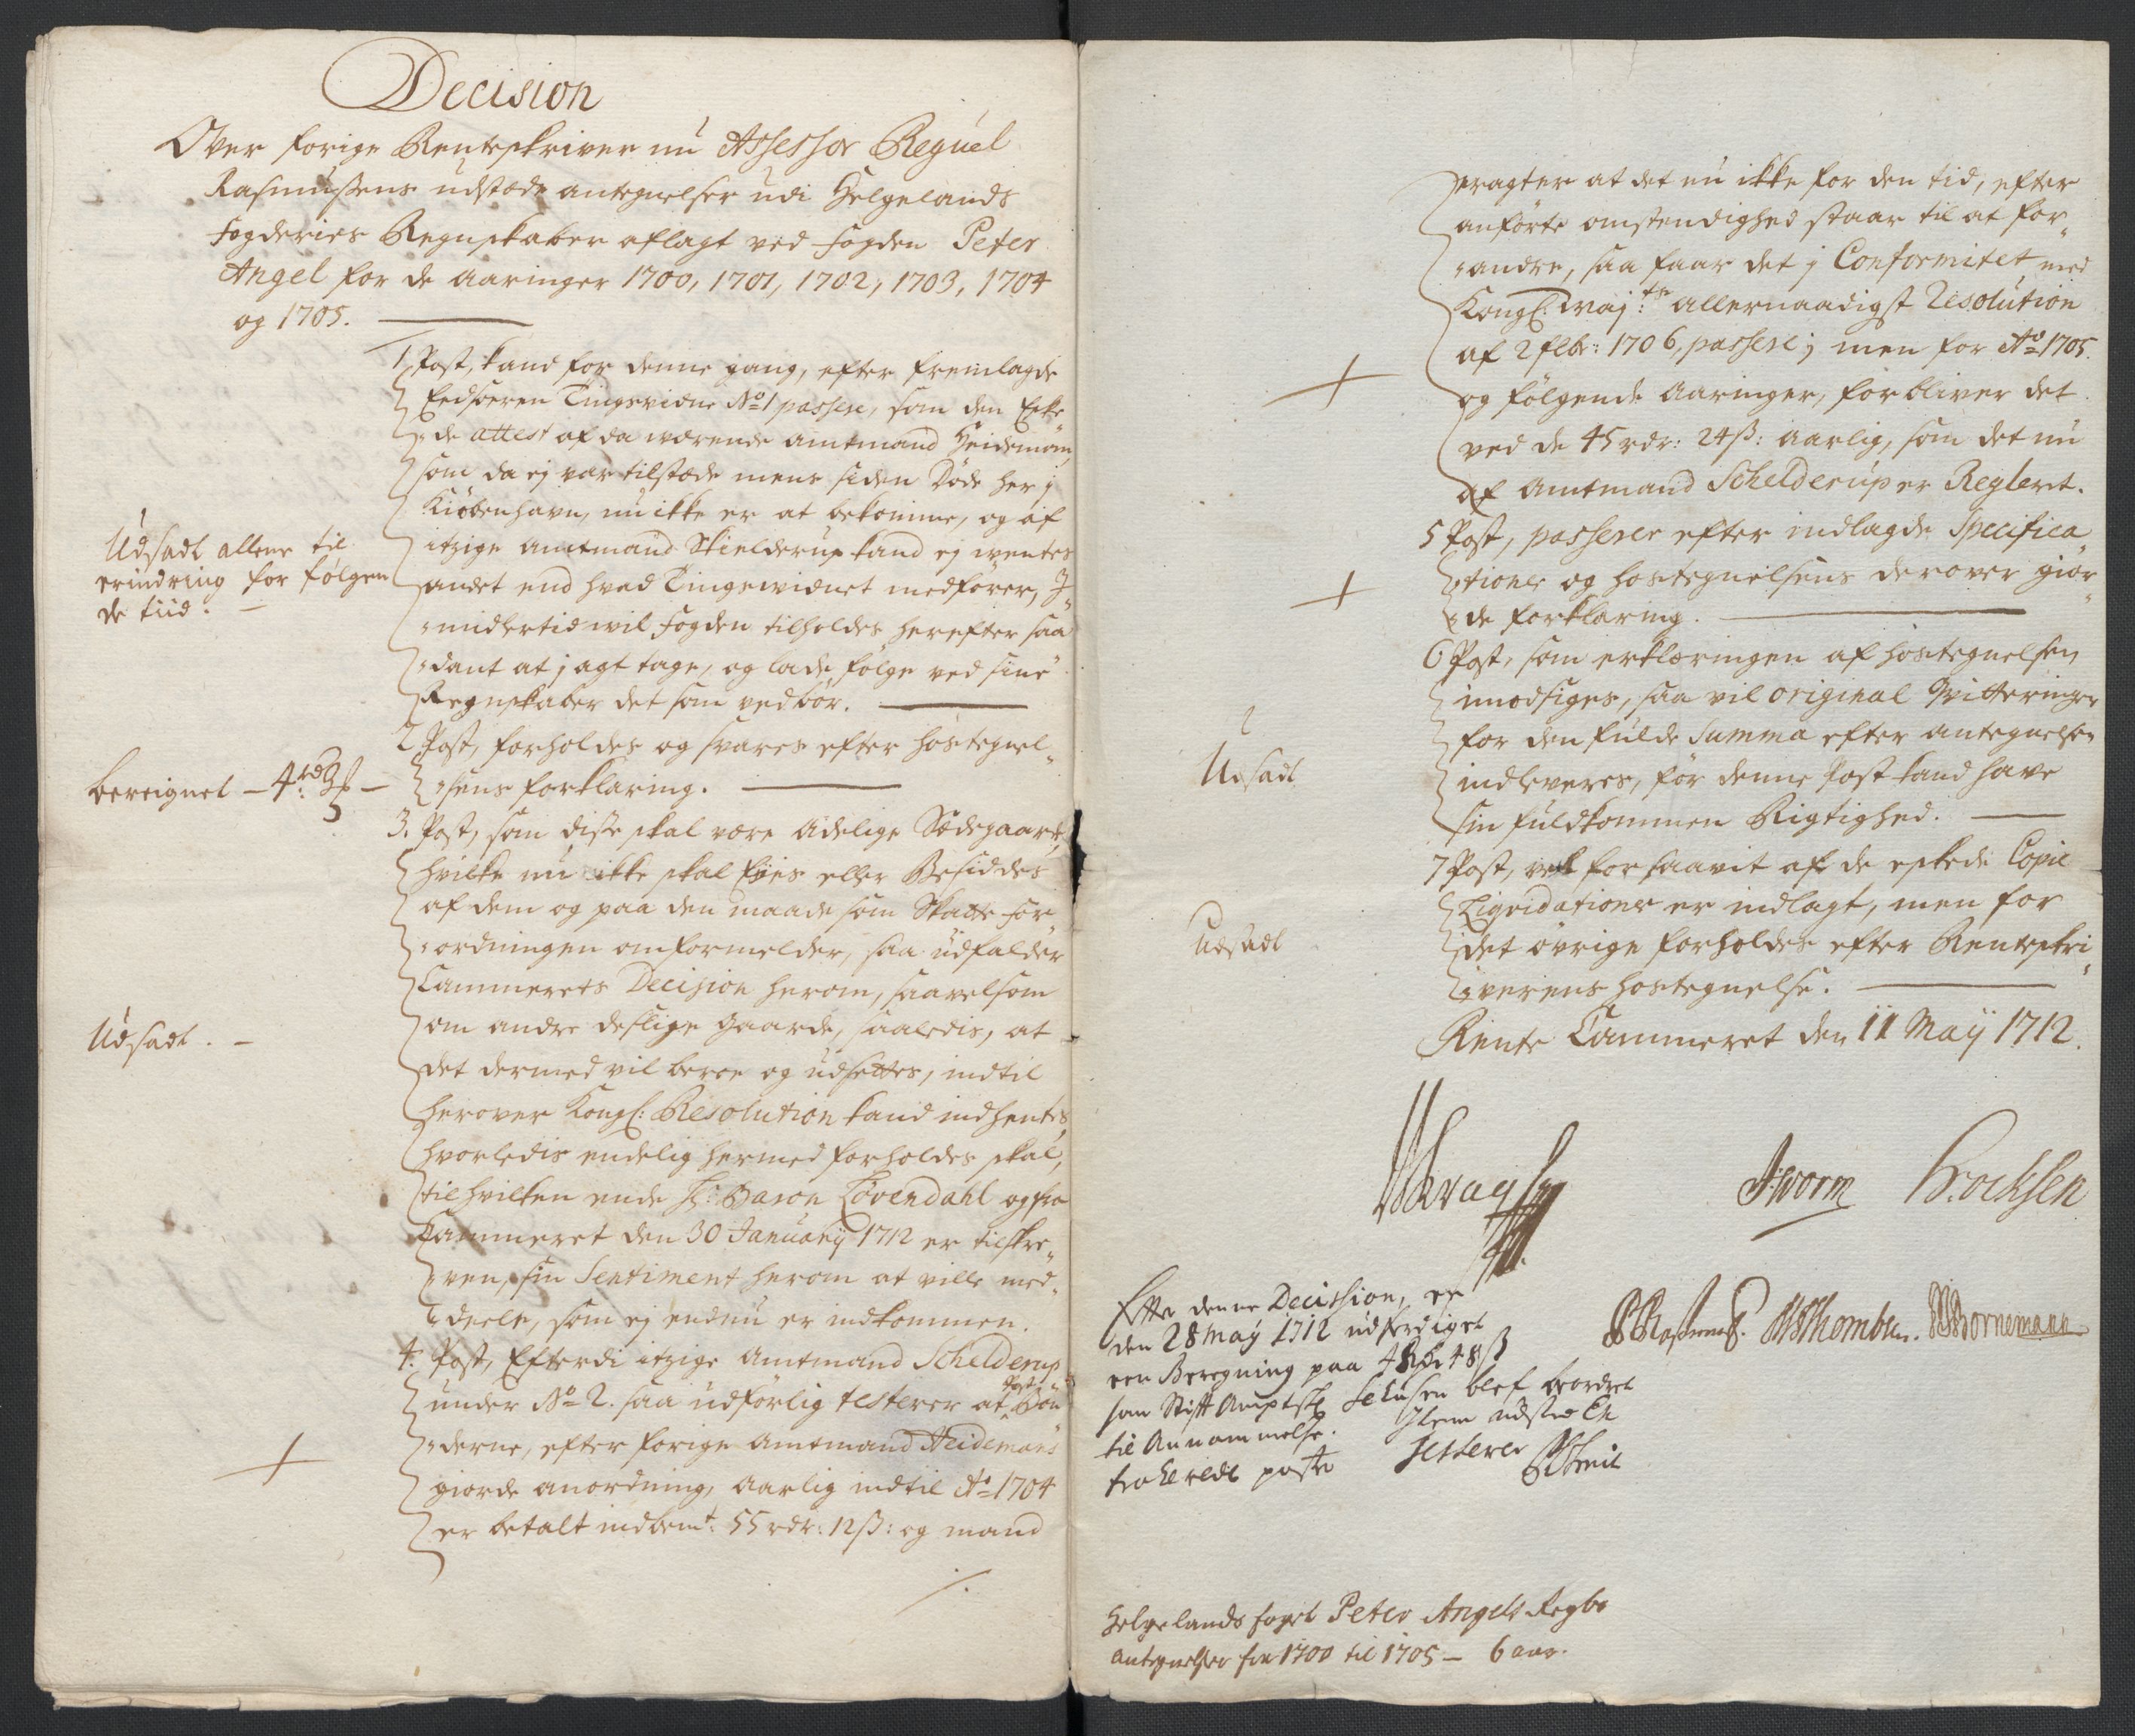 Decision
Over forige Renteskriver nu Assessor Reguel
Rasmussens udstæde antegnelser udi Helgelands
fogderies Regnskaber aflagt ved fogden Peter
Angel for de Aaringer 1700, 1701, 1702, 1703, 1704
og 1705.
1 Post, kand for denne gang, efter fremlagde
Eedsoeren Tingsvidne No 1 passere, som den Eske
de attest af da værende amtmand Heideman,
som da ej var tilstæde mens siden Døde her j
Kiöbenhavn, nu ikke er at bekomme, og af
itzige Amtmand Skielderup kand ej ventes
andet end hvad Tingsvidnet medförer, J
midlertid vil fogden tilholdes herefter saa
dant at j agt tage, og lade følge ved sine
Regnskaber det som vedbör.
Udsadt allene til
erindring for følgen
de tiid.
2 Post, forholdes og svares efter hostegnel
sens forklaring.
bereignet - 4 rd
3. Post, som disse skal være Adelige Sædegaarde,
hvilke nu ikke skal Ejes eller Besiddes
af dem og paa den maade som Skatte for
ordningen omformelder, saa udfalder
Cammerets Decision herom, saavelsom
om andre deslige gaarde, saaledis, at
det dermed vil beroe og udsettes, indtil
herover Kongl: Resolution kand indhentes,
hvorledis endelig hermed forholdes skal,
til hvilken ende Hr: Baron Løvendahl og fra
Cammeret den 30 Januarij 1712 er tilskre
ven, sin Sentiment herom at ville med
deele, som ej endnu er indkommen.
Udsadt. -
4. Post, Efterdi itzige Amtmand Schelderup
under No 2. saa udförlig testerer at Bön
derne, efter forige Amtmand Heidemans
giorde anordning, Aarlig indtil Ao 1704
er betalt indbemt: 55 rdr: 12 ß: og mand
eragter at det nu ikke for den tid, efter
anförte omstendighed staar til at for
andre, saa faar det j Conformitet med
Kongl: Maj:ts allernaadigst Resolution
af 2 1706, passere; men for Ao 1705.
og følgende Aaringer, forbliver det
ved de 45 rdr: 24 ß: Aarlig, som det nu
af Amtmand Schelderup er Regleret.
5 Post, passerer efter indlagde Specifica
tioner og hostegnelsens derover giör
de forklaring.
6 Post, som erklæringen af hostegnelsen
imodsiges, saa vil original Qvitteringer
for den fulde Summa efter antegnelsen
indleveres, för denne Post kand have
sin fuldkommen Rigtighed.
Udsadt
7 Post, vel for saavit af de eskede Copie
Liqvidationer er indlagt, men for
det øvrige forholdes efter Renteskri
verens hostegnelse.
Udsadt
Rente Cammeret den 11 Maij 1712.
JWorm
Bornemann
Efter denne Decission, er
den 28 Maij 1712 udferdiget
een Beregning paa
som Stift Amptskr blef beordret
til Annammelse.
Testerer
Helgelands foget Peter Angels Regbs
antegnelser fra 1700 til 1705 - 6 aar.